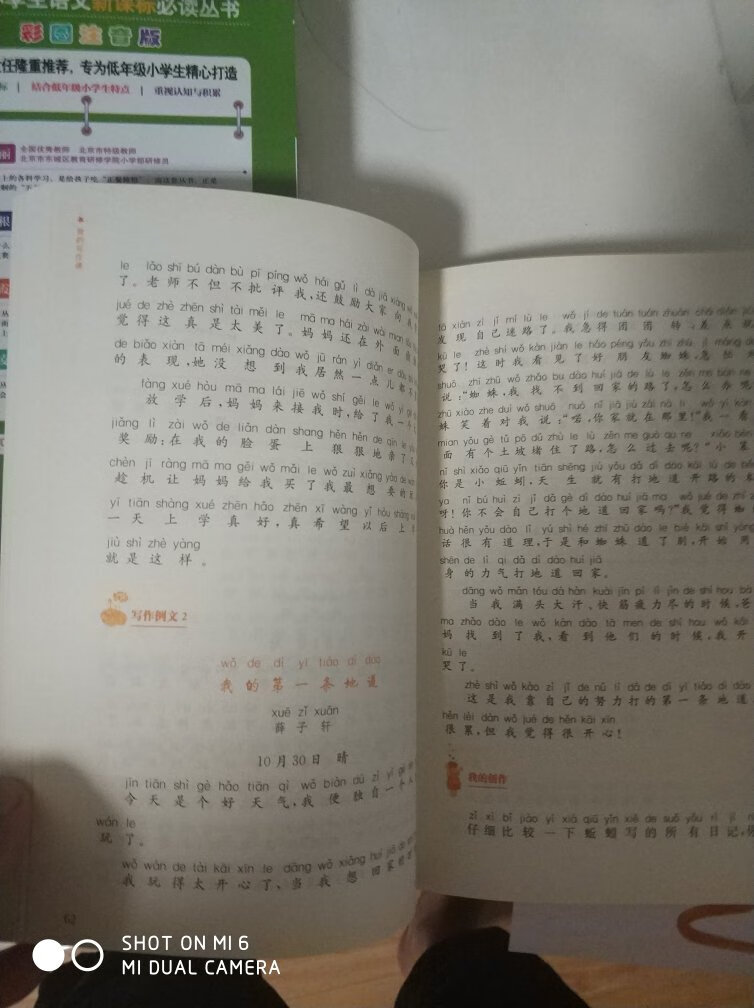 学生语文新课标必读丛书
彩图注音版
任隆重推荐，专为低年级小学生精心打造
标 | 结合低年级小学生特点 | 重视认知与积累
全国优秀教师 北京市特级教师
北京市东城区教育研修学院小学部研修员
我的写作课
le lǎo shī bú dàn bù pī píng wǒ hái gǔ lì dà jiā xiàng wǒ
了。老师不但不批评我,还鼓励大家向我
jué de zhè zhēn shì tài měi le mā ma hái zài wài mian
觉得这真是太美了。妈妈还在外面
de biǎo xiàn tā méi xiǎng dào wǒ jū rán yì diǎn er dōu
的表现,她没想到我居然一点儿都
fàng xué hòu mā ma lái jiē wǒ shí gěi le wǒ yí gè
放学后,妈妈来接我时,给了我一
jiǎng lì zài wǒ de liǎn dàn shang hěn hěn de qīn le
奖励:在我的脸蛋上狠狠地亲了
chèn jī ràng mā ma gěi wǒ mǎi le wǒ zuì xiǎng yào de
趁机让妈妈给我买了我最想要的
yì tiān shàng xué zhēn hǎo zhēn xī wàng yǐ hòu shàng
一天上学真好,真希望以后上
jiù shì zhè yàng
就是这样。
写作例文2
wǒ de dì yī tiáo dì dào
我的第一条地道
xuē zǐ xuān
薛子轩
10月30日 晴
jīn tiān shì gè hǎo tiān qì wǒ biàn dú zì yí gè
今天是个好天气,我便独自一个
wán le
玩了。
wǒ wán de tài kāi xīn le dāng wǒ xiǎng huí jiā de
我玩得太开心了,当我想回家的
62
fā xiàn zì jǐ mí lù le wǒ jí de tuán tuán zhuàn chà diǎn
发现自己迷路了。我急得团团转,差点就
kū le zhè shí wǒ kàn jiàn le hǎo péng yǒu zhī zhū jí máng
哭了!这时我看见了好朋友蜘蛛,急忙
shuō zhī zhū wǒ zhǎo bu dào huí jiā de lù le zěn me bàn ne
说:“蜘蛛,我找不到回家的路了,怎么办呢
zhū xiào zhe duì wǒ shuō nuò nǐ jiā jiù zài nà li wǒ yí kàn
蛛笑着对我说:“喏,你家就在那里!”我一看
mian yǒu gè tǔ pō dǔ zhù le lù zěn me guò qu ne
面有个土坡堵住了路,怎么过去呢?”小
nǐ shì xiǎo qiū yǐn tiān shēng jiù yǒu dǎ dì dào kāi lù de běn
你是小蚯蚓,天生就有打地道开路的本
ya nǐ bú huì zì jǐ dǎ gè dì dào huí jiā ma wǒ jué de zhī
呀!你不会自己打个地道回家吗?”我觉得蜘
huà hěn yǒu dào lǐ yú shì hé zhī zhū dào le bié kāi shǐ yòng
话很有道理,于是和蜘蛛道了别,开始用
shēn de lì qi dǎ dì dào huí jiā
身的力气打地道回家。
dāng wǒ mǎn tóu dà hàn kuài jīn pí lì jìn de shí hou bà
当我满头大汗、快筋疲力尽的时候,爸
ma zhǎo dào le wǒ kàn dào tā men de shí hou wǒ kāi
妈找到了我,看到他们的时候,我开
kū le
哭了。
zhè shì wǒ kào zì jǐ de nǔ lì dǎ de dì yī tiáo dì dào
这是我靠自己的努力打的第一条地道
hěn lèi dàn wǒ jué de hěn kāi xīn
很累,但我觉得很开心!
我的创作
zǐ xì bǐ jiào yí xià qiū yǐn xiě de suǒ yǒu rì jì
仔细比较一下蚯蚓写的所有日记,你
SHOT ON MI 6
MI DUAL CAMERA